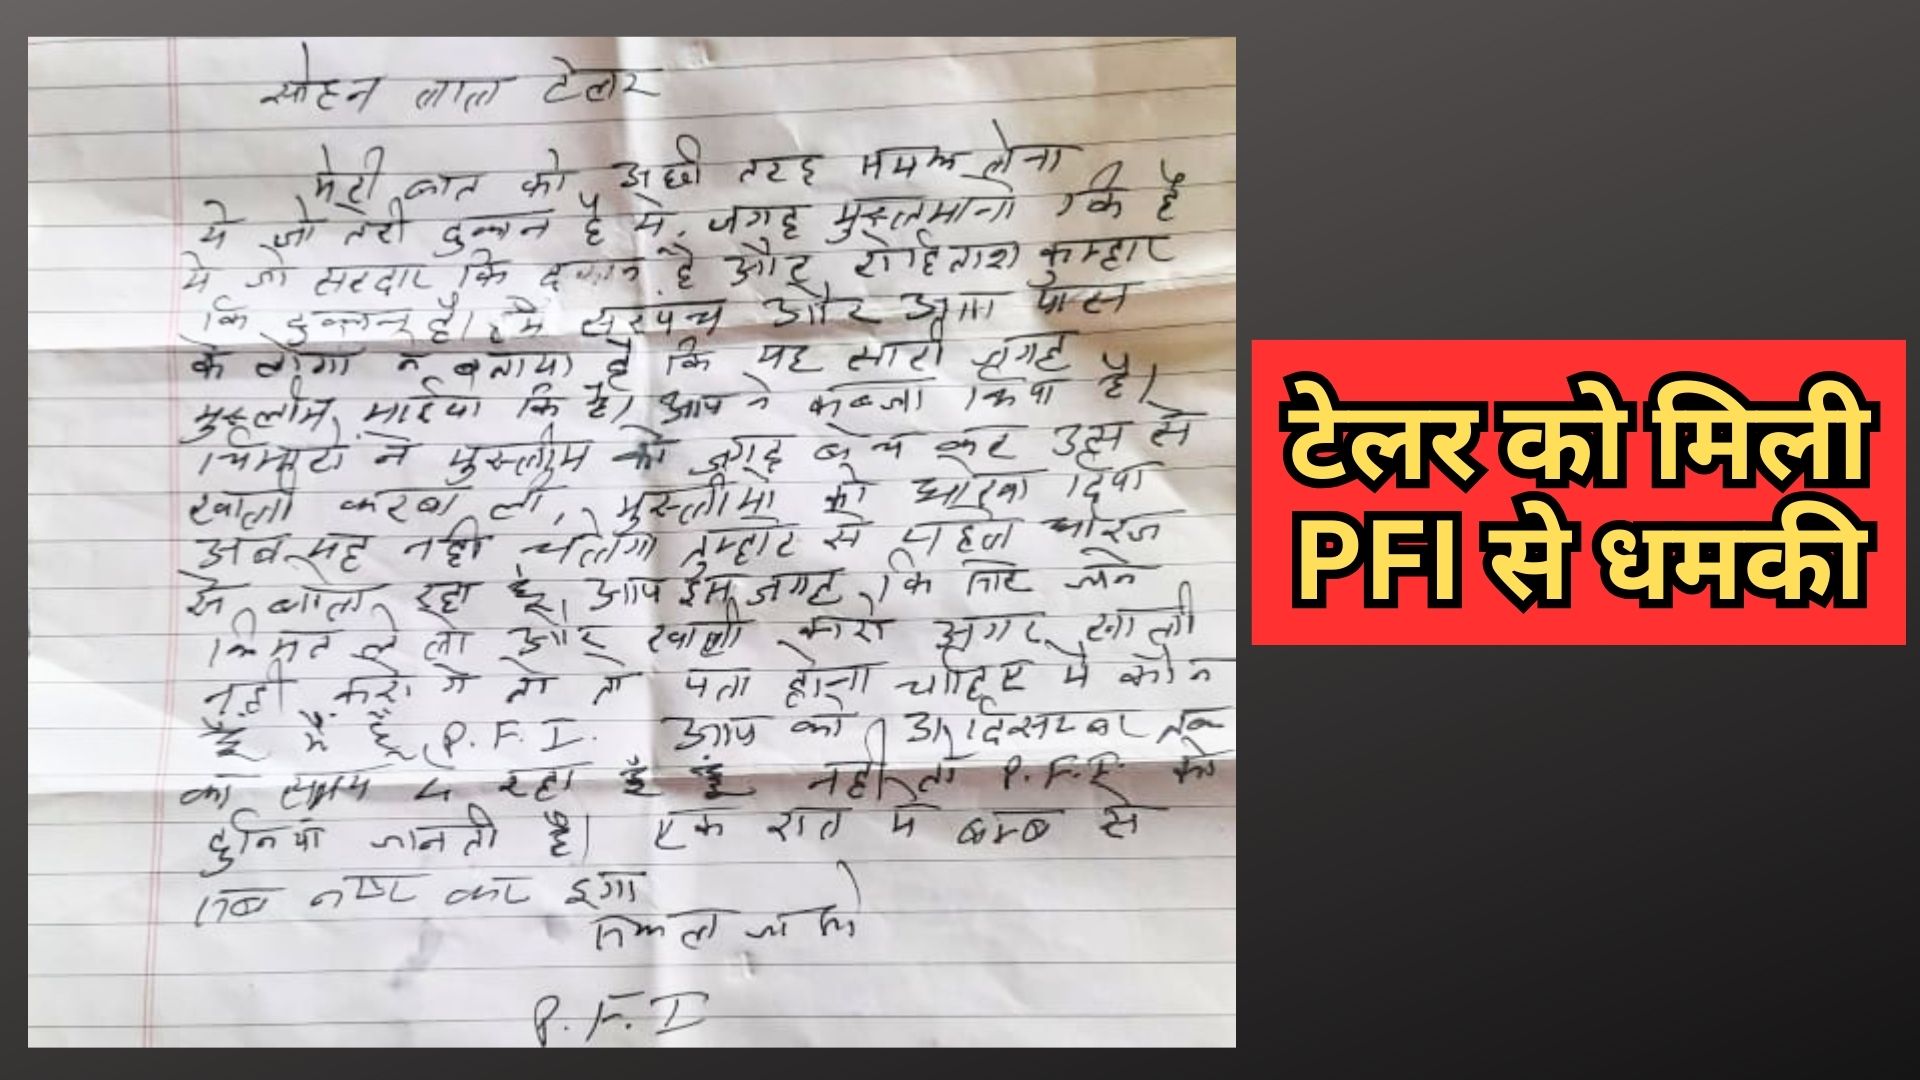 सोहन लाल टेलर
मेरी बात को अछी तरह समझ लेना
ये जो तेरी दुकान है ये जगह मुस्लमानो कि है
ये जो सरदार कि दुकान है और रोहिताश कुम्हार
कि दुकान है। हमे सरपंच और आस पास
के लोगो ने बताया है कि यह सारी जगह
मुस्लीम भाईयो कि है। आप ने कब्जा किया है।
ने मुस्लीम को जगह बेच कर उस से
खाली करवा ली, मुस्लीमो को धोखा दिया
अब यह नही चलेगा तुम्हारे से पहले
से बोल रहा हूं। आप इस जगह कि
किमत ले लो और खाली करो अगर खाली
नही करो गे तो तो पता होना चाहिए मै कौन
हूं मै हूं P.F.I. आप को 31 दिसम्बर तक
का समय दे रहा हूं नही तो P.F.I. को
दुनिया जानती है। एक रात मे बम्ब से
सब नष्ट कर दुगा
निकलो
P.F.I
टेलर को मिली
PFI से धमकी